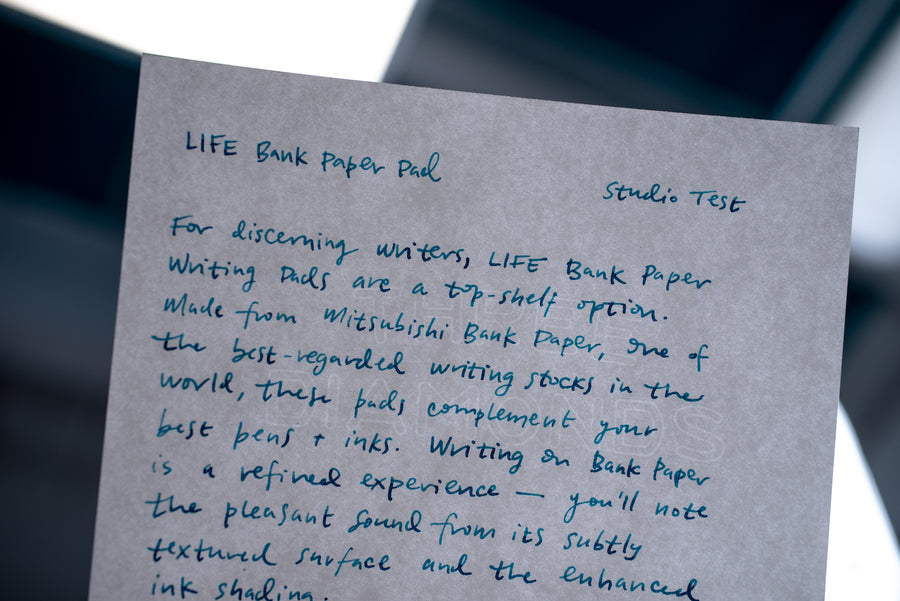 LIFE Bank Paper Pad
Studio Test
For discerning writers, LIFE Bank Paper
Writing Pads are a top-shelf option.
Made from Mitsubishi Bank Paper, one of
the best-regarded writing stocks in the
world, these pads complement your
best pens + inks. Writing on Bank Paper
is a refined experience — you'll note
the pleasant sound from its subtly
textured surface and the enhanced
ink shading.
THREE
DIAMONDS